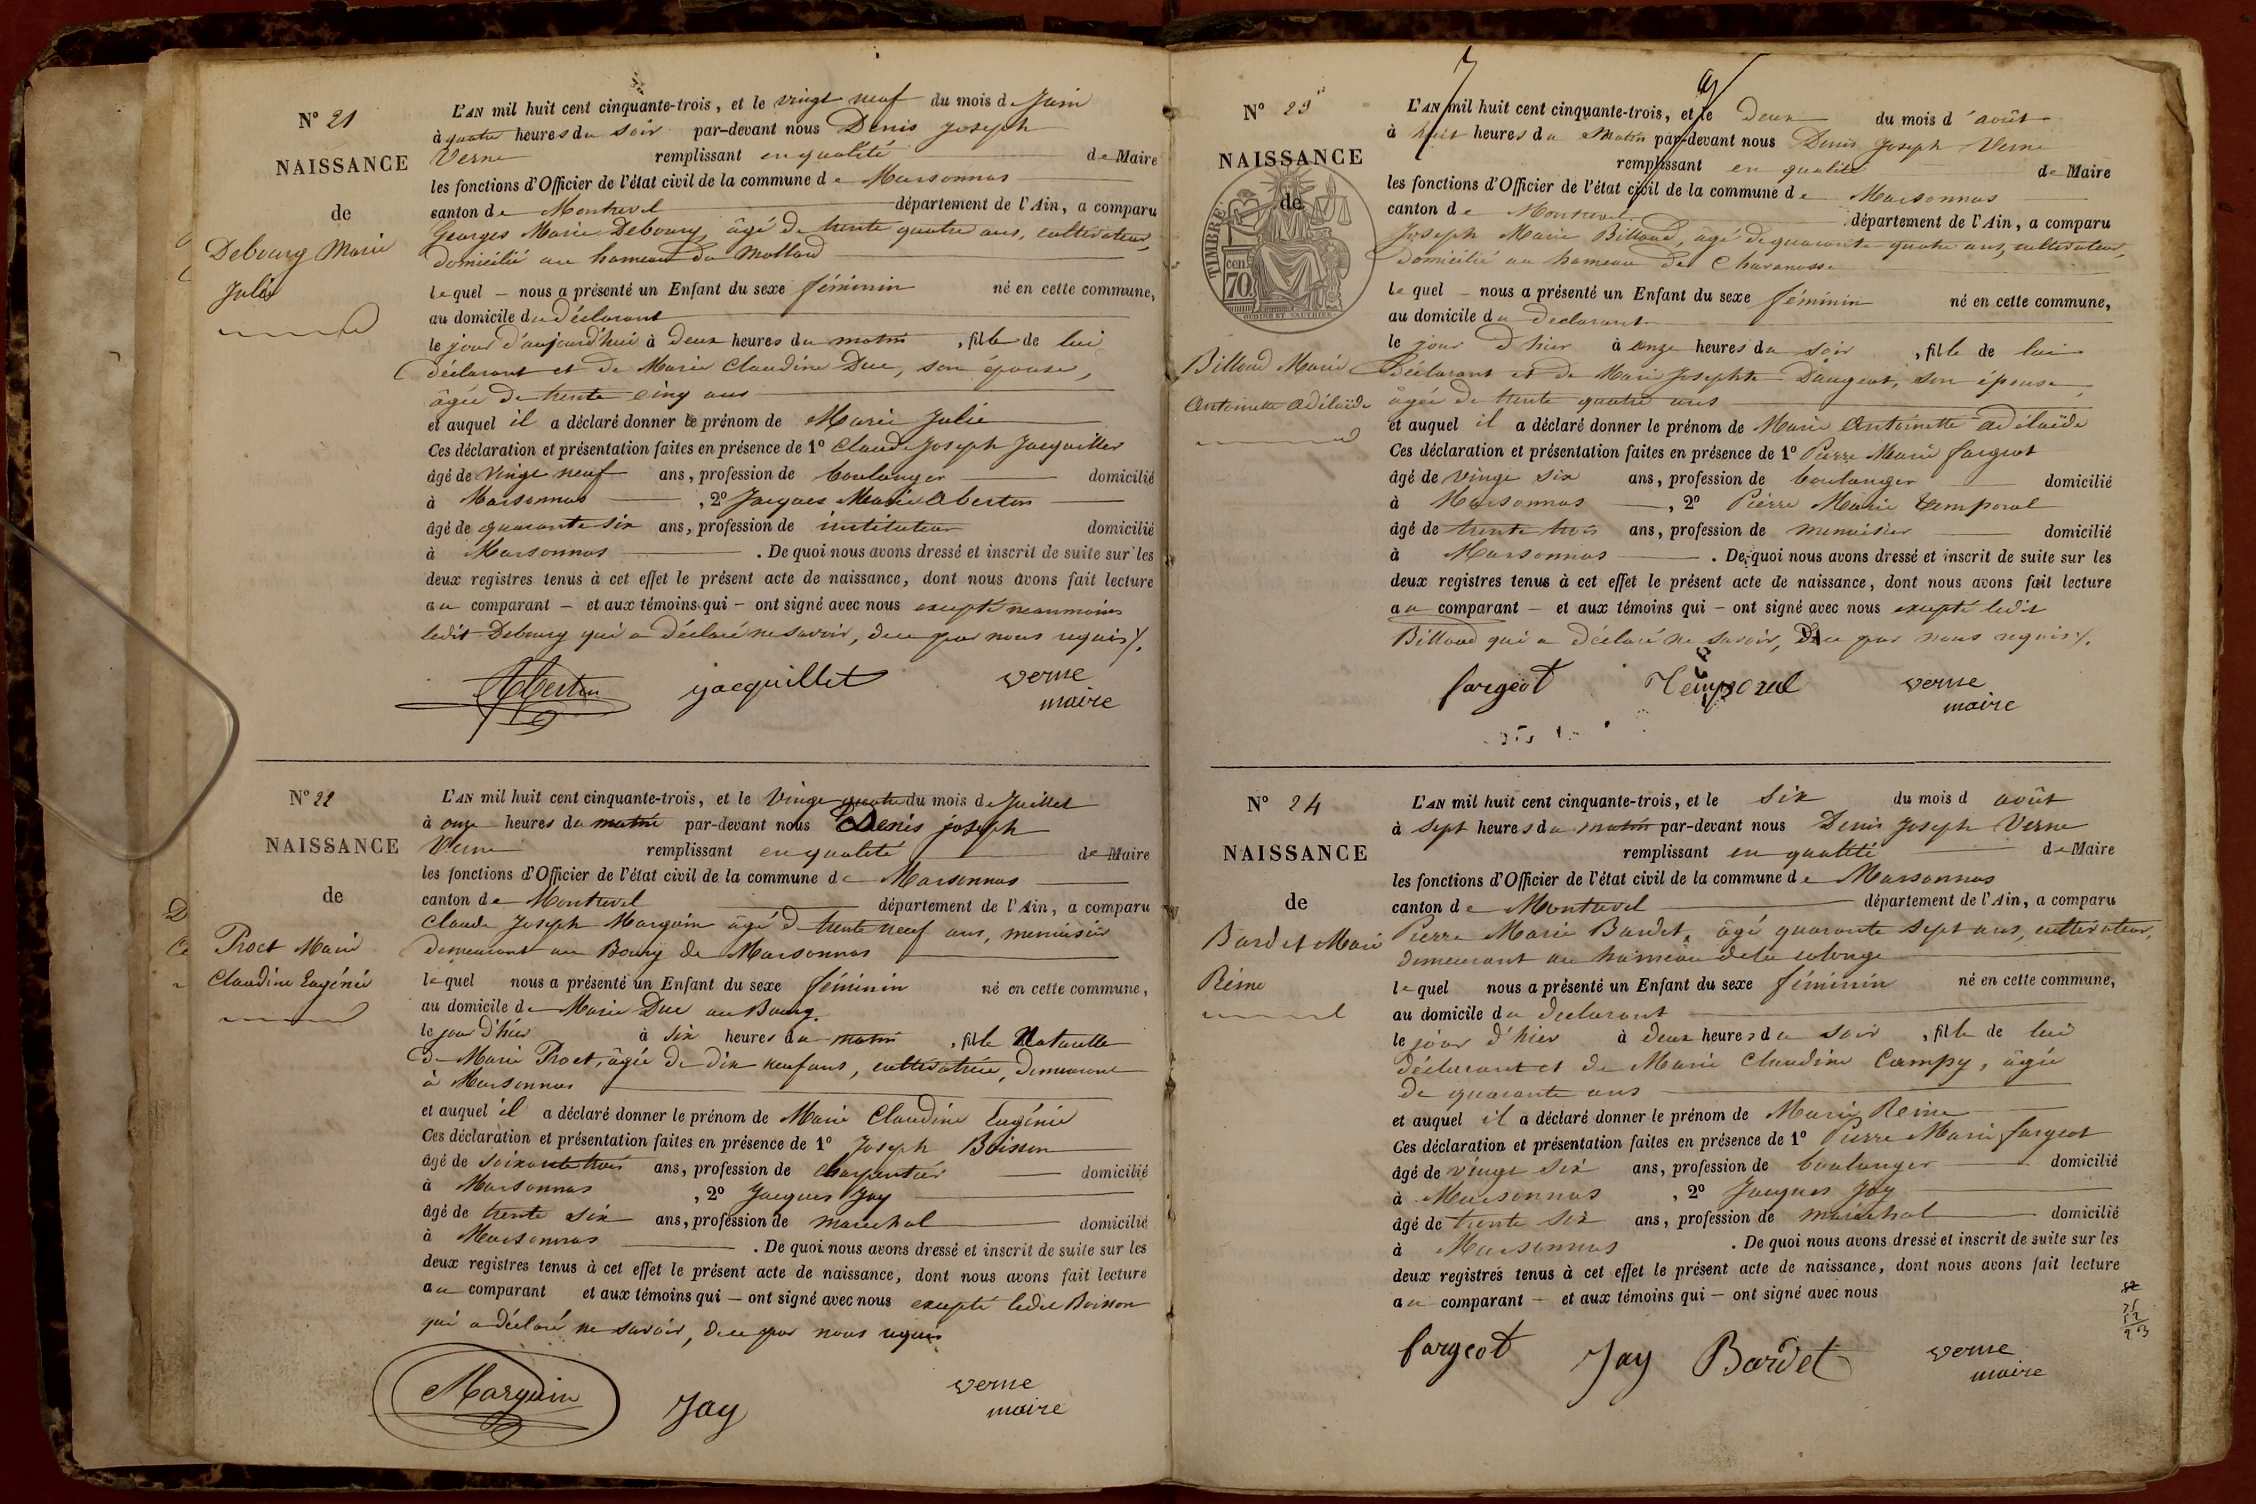 N° 21
NAISSANCE
de
Debourg Marie
Julie
L'AN mil huit cent cinquante-trois, et le vingt neuf du mois de Juin
à quatre heures du soir par-devant nous Denis Joseph
Verne remplissant en qualité de Maire
les fonctions d'Officier de l'état civil de la commune de Marsonnas
canton de Montrevel département de l'Ain, a comparu
Georges Marie Debourg, âgé de trente quatre ans, cultivateur,
domicilié au hameau du Mollard
lequel nous a présenté un Enfant du sexe féminin né en cette commune,
au domicile du déclarant
le jour d'aujourd'hui à deux heures du matin, fille de lui
déclarant et de Marie Claudine Duc, son épouse,
âgée de trente cinq ans
et auquel il a déclaré donner le prénom de Marie Julie
Ces déclaration et présentation faites en présence de 1° Claude Joseph Jacquillet
âgé de vingt neuf ans, profession de boulanger domicilié
à Marsonnas, 2° Jacques Marie Aberton
âgé de quarante six ans, profession de instituteur domicilié
à Marsonnas. De quoi nous avons dressé et inscrit de suite sur les
deux registres tenus à cet effet le présent acte de naissance, dont nous avons fait lecture
au comparant et aux témoins qui ont signé avec nous excepté néanmoins
ledit Debourg qui a déclaré ne savoir, de ce par nous requis.
jacquillet verne
maire
N° 22
NAISSANCE
de
Proet Marie
Claudine Eugénie
L'AN mil huit cent cinquante-trois, et le Vingt quatre du mois de Juillet
à onze heures du matin par-devant nous Denis joseph
Verne remplissant en qualité de Maire
les fonctions d'Officier de l'état civil de la commune de Marsonnas
canton de Montrevel département de l'Ain, a comparu
Claude Joseph Marguin âgé d trente neuf ans, menuisier
demeurant au Bourg de Marsonnas
lequel nous a présenté un Enfant du sexe féminin né en cette commune,
au domicile de Marie Duc au Bourg.
le jour d'hier à six heures du matin, fille Naturelle
de Marie Proet, âgée de dix neuf ans, cultivatrice, demeurant
à Marsonnas
et auquel il a déclaré donner le prénom de Marie Claudine Eugénie
Ces déclaration et présentation faites en présence de 1° Joseph Boisson
âgé de soixante trois ans, profession de charpentier domicilié
à Marsonnas, 2° Jacques Jay
âgé de trente six ans, profession de maréchal domicilié
à Marsonnas. De quoi nous avons dressé et inscrit de suite sur les
deux registres tenus à cet effet le présent acte de naissance, dont nous avons fait lecture
au comparant et aux témoins qui ont signé avec nous excepté ledit Boisson
qui a déclaré ne savoir, de ce par nous requis
Marguin Jay verne
maire
N° 23
NAISSANCE
de
TIMBRE
cen.
70
Billoud Marie
Antoinette Adélaïde
L'AN mil huit cent cinquante-trois, et le deux du mois d'août
à huit heures du matin par-devant nous Denis Joseph Verne
remplissant en qualité de Maire
les fonctions d'Officier de l'état civil de la commune de Marsonnas
canton de Montrevel département de l'Ain, a comparu
Joseph Marie Billoud, âgé de quarante quatre ans, cultivateur,
domicilié au hameau de Charanosse
lequel nous a présenté un Enfant du sexe féminin né en cette commune,
au domicile du déclarant
le jour d'hier à onze heures du soir, fille de lui
déclarant et de Marie Josephte Daugeat, son épouse,
âgée de trente quatre ans
et auquel il a déclaré donner le prénom de Marie Antoinette Adélaïde
Ces déclaration et présentation faites en présence de 1° Pierre Marie fargeot
âgé de vingt six ans, profession de boulanger domicilié
à Marsonnas, 2° Pierre Marie Temporal
âgé de trente trois ans, profession de menuisier domicilié
à Marsonnas. De quoi nous avons dressé et inscrit de suite sur les
deux registres tenus à cet effet le présent acte de naissance, dont nous avons fait lecture
au comparant et aux témoins qui ont signé avec nous excepté ledit
Billoud qui a déclaré ne savoir, de ce par nous requis.
fargeot Temporal verne
maire
N° 24
NAISSANCE
de
Bardet Marie
Reine
L'AN mil huit cent cinquante-trois, et le six du mois d août
à sept heures du matin par-devant nous Denis Joseph Verne
remplissant en qualité de Maire
les fonctions d'Officier de l'état civil de la commune de Marsonnas
canton de Montrevel département de l'Ain, a comparu
Pierre Marie Bardet, âgé quarante sept ans, cultivateur,
demeurant au hameau de la colonge
lequel nous a présenté un Enfant du sexe féminin né en cette commune,
au domicile du déclarant
le jour d'hier à deux heures du soir, fille de lui
déclarant et de Marie Claudine Campy, âgée
de quarante ans
et auquel il a déclaré donner le prénom de Marie Reine
Ces déclaration et présentation faites en présence de 1° Pierre Marie fargeot
âgé de vingt six ans, profession de boulanger domicilié
à Marsonnas, 2° Jacques Jay
âgé de trente six ans, profession de maréchal domicilié
à Marsonnas. De quoi nous avons dressé et inscrit de suite sur les
deux registres tenus à cet effet le présent acte de naissance, dont nous avons fait lecture
au comparant et aux témoins qui ont signé avec nous
fargeot Jay Bardet verne
maire